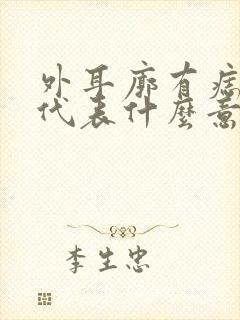 外耳廓有痣
代表什麼意
李生忠